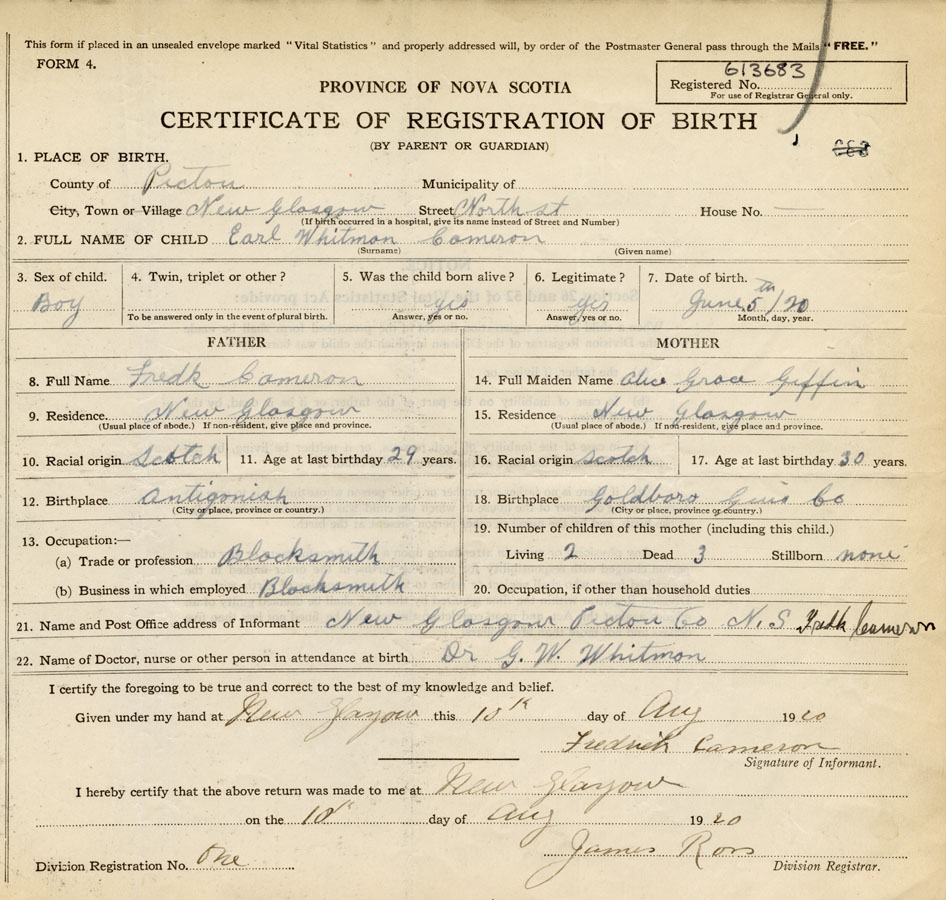 This form if placed in an unsealed envelope marked "Vital Statistics" and properly addressed will, by order of the Postmaster General pass through the Mails "FREE."
FORM 4.
613683
Registered No.
For use of Registrar General only.
PROVINCE OF NOVA SCOTIA
CERTIFICATE OF REGISTRATION OF BIRTH
(BY PARENT OR GUARDIAN)
1. PLACE OF BIRTH.
County of Pictou Municipality of
City, Town or Village New Glasgow Street North st House No.
(If birth occurred in a hospital, give its name instead of Street and Number)
2. FULL NAME OF CHILD Earl Whitman Cameron
(Surname) (Given name)
3. Sex of child. 4. Twin, triplet or other? 5. Was the child born alive? 6. Legitimate? 7. Date of birth.
Boy yes yes June 5th/20
To be answered only in the event of plural birth. Answer, yes or no. Answer, yes or no. Month, day, year.
FATHER MOTHER
8. Full Name Fredk Cameron 14. Full Maiden Name Alice Grace Giffin
9. Residence. New Glasgow 15. Residence New Glasgow
(Usual place of abode.) If non-resident, give place and province. (Usual place of abode.) If non-resident, give place and province.
10. Racial origin Scotch 11. Age at last birthday 29 years. 16. Racial origin Scotch 17. Age at last birthday 30 years.
12. Birthplace Antigonish 18. Birthplace Goldboro Guis Co
(City or place, province or country.) (City or place, province or country.)
19. Number of children of this mother (including this child.)
13. Occupation:—
(a) Trade or profession Blacksmith Living 2 Dead 3 Stillborn none
(b) Business in which employed Blacksmith 20. Occupation, if other than household duties
21. Name and Post Office address of Informant New Glasgow Pictou Co N.S Fredk Cameron
22. Name of Doctor, nurse or other person in attendance at birth Dr G. W. Whitman
I certify the foregoing to be true and correct to the best of my knowledge and belief.
Given under my hand at New Glasgow this 10th day of Aug 1920
Fredrick Cameron
Signature of Informant.
I hereby certify that the above return was made to me at New Glasgow
on the 10th day of Aug 1920
James Ross
Division Registration No. One Division Registrar.